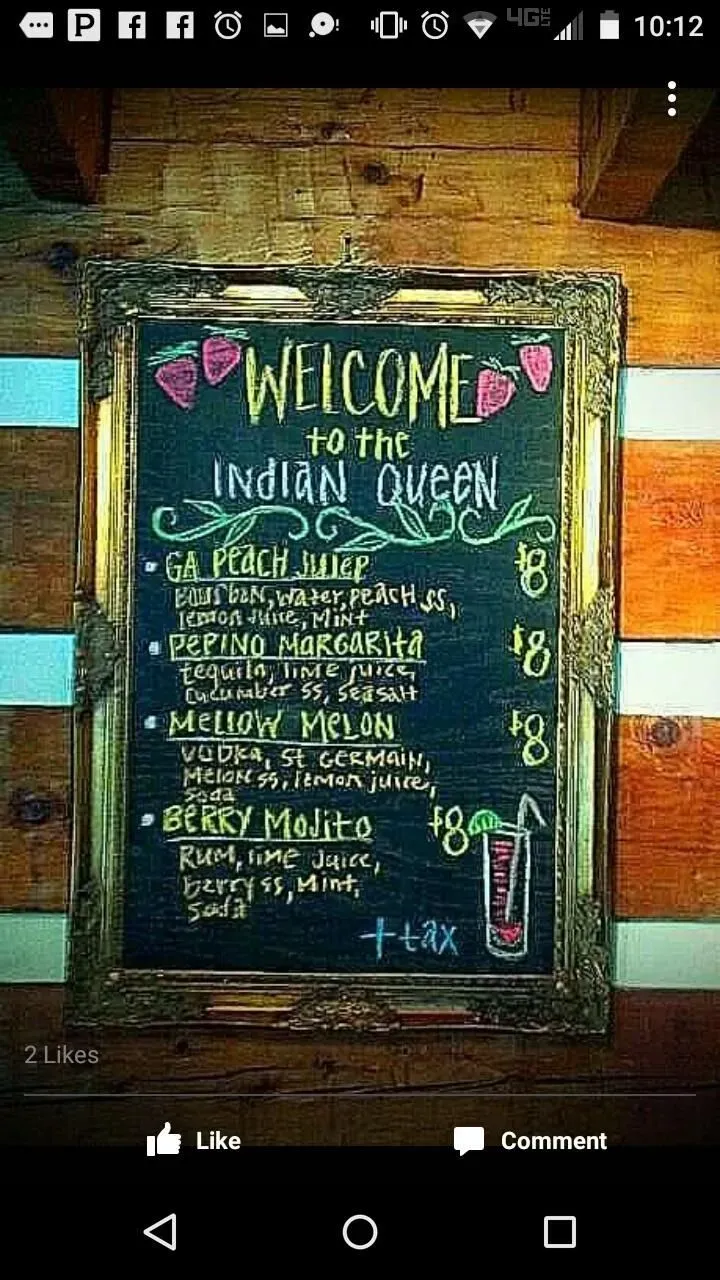 4G LTE 10:12
WELCOME
to the
INdIAN QUEEN
GA PEACH JULEP $8
BOURBON, water, PEACH SS,
lemon Juice, MINT
PEPINO MARGARITA $8
tequila, lime juice,
cucumber SS, seasalt
MELLOW MELON $8
VODKA, St GERMAIN,
MELON SS, lemon juice,
soda
BERRY MOJITO $8
RUM, lime Juice,
berry SS, Mint,
soda
+tax
2 Likes
Like Comment